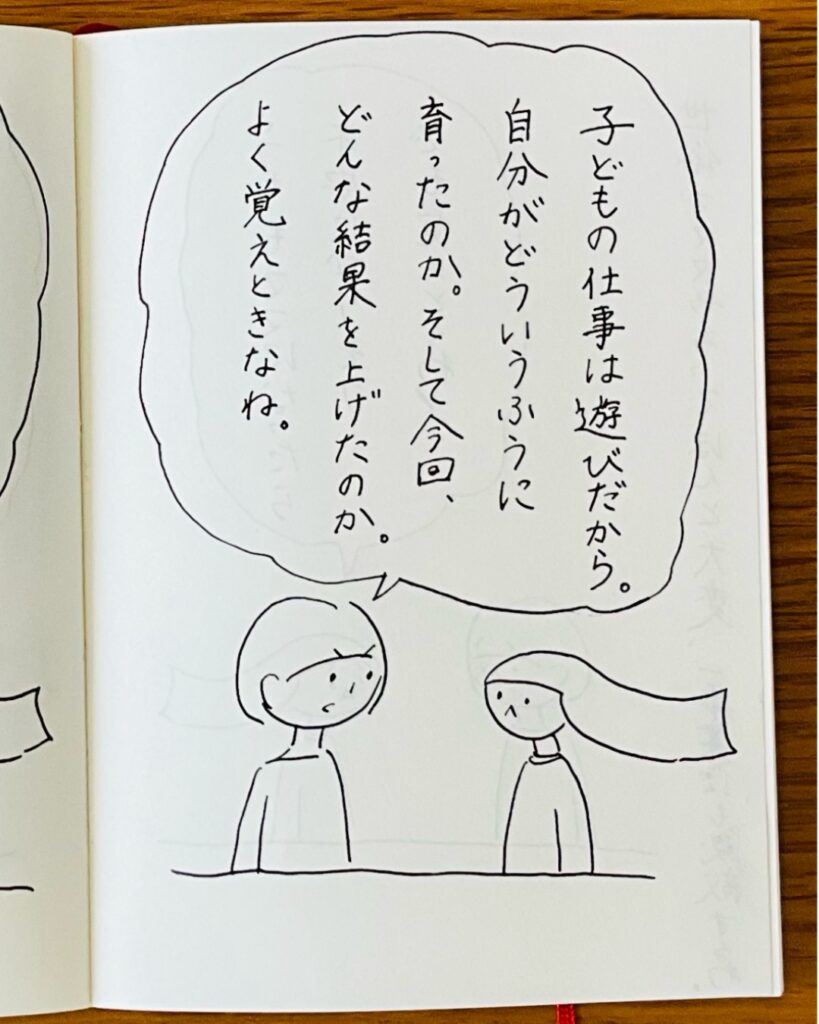 子どもの仕事は遊びだから。
自分がどういうふうに
育ったのか。そして今回、
どんな結果を上げたのか。
よく覚えときなね。